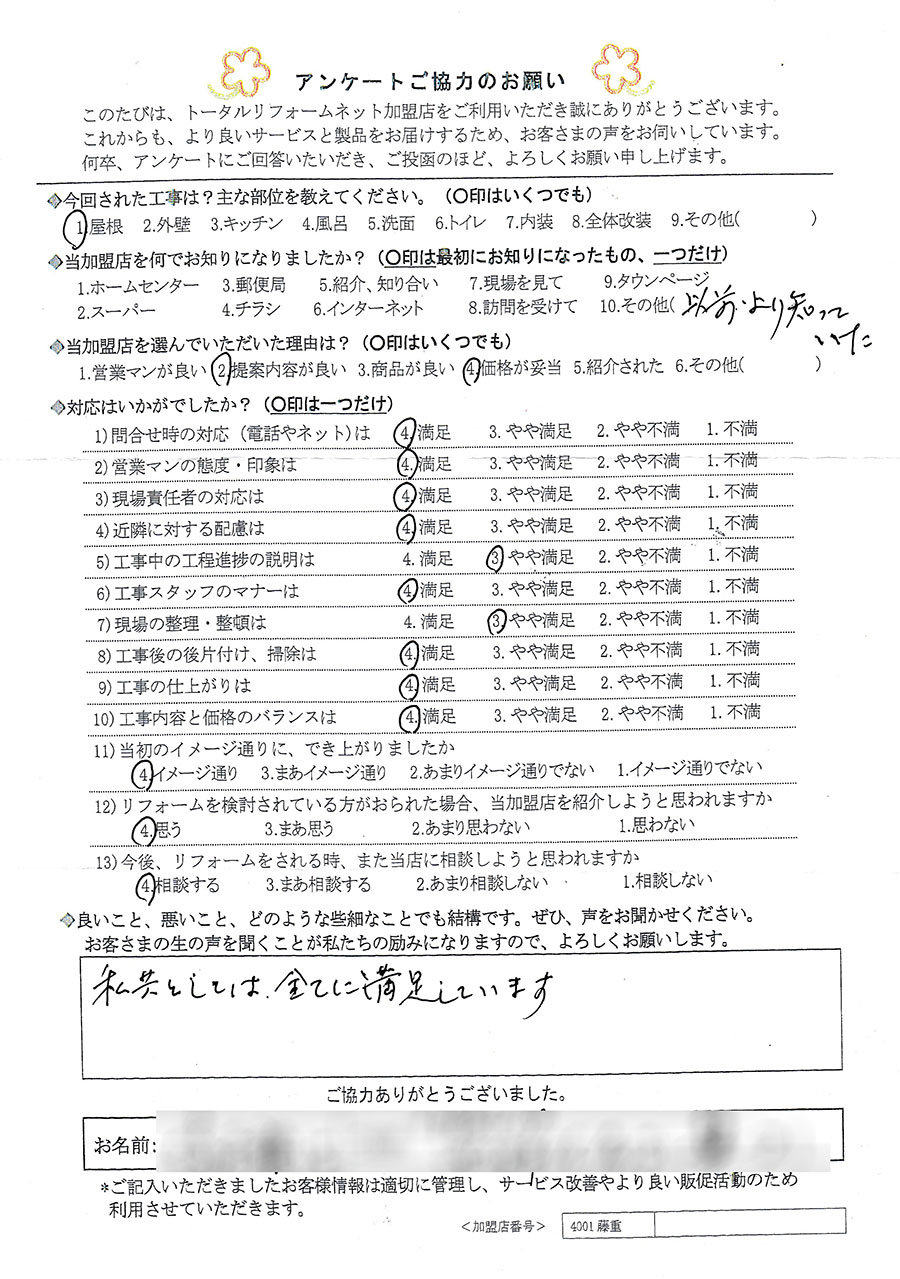 アンケートご協力のお願い
このたびは、トータルリフォームネット加盟店をご利用いただき誠にありがとうございます。
これからも、より良いサービスと製品をお届けするため、お客さまの声をお伺いしています。
何卒、アンケートにご回答いたいだき、ご投函のほど、よろしくお願い申し上げます。
◈今回された工事は？主な部位を教えてください。（〇印はいくつでも）
1.屋根 2.外壁 3.キッチン 4.風呂 5.洗面 6.トイレ 7.内装 8.全体改装 9.その他( )
◈当加盟店を何でお知りになりましたか？（〇印は最初にお知りになったもの、一つだけ）
1.ホームセンター 3.郵便局 5.紹介、知り合い 7.現場を見て 9.タウンページ
2.スーパー 4.チラシ 6.インターネット 8.訪問を受けて 10.その他( 以前より知って
いた
◈当加盟店を選んでいただいた理由は？（〇印はいくつでも）
1.営業マンが良い 2.提案内容が良い 3.商品が良い 4.価格が妥当 5.紹介された 6.その他( )
◈対応はいかがでしたか？（〇印は一つだけ）
1)問合せ時の対応（電話やネット)は 4.満足 3.やや満足 2.やや不満 1.不満
2)営業マンの態度・印象は 4.満足 3.やや満足 2.やや不満 1.不満
3)現場責任者の対応は 4.満足 3.やや満足 2.やや不満 1.不満
4)近隣に対する配慮は 4.満足 3.やや満足 2.やや不満 1.不満
5)工事中の工程進捗の説明は 4.満足 3.やや満足 2.やや不満 1.不満
6)工事スタッフのマナーは 4.満足 3.やや満足 2.やや不満 1.不満
7)現場の整理・整頓は 4.満足 3.やや満足 2.やや不満 1.不満
8)工事後の後片付け、掃除は 4.満足 3.やや満足 2.やや不満 1.不満
9)工事の仕上がりは 4.満足 3.やや満足 2.やや不満 1.不満
10)工事内容と価格のバランスは 4.満足 3.やや満足 2.やや不満 1.不満
11)当初のイメージ通りに、でき上がりましたか
4.イメージ通り 3.まあイメージ通り 2.あまりイメージ通りでない 1.イメージ通りでない
12)リフォームを検討されている方がおられた場合、当加盟店を紹介しようと思われますか
4.思う 3.まあ思う 2.あまり思わない 1.思わない
13)今後、リフォームをされる時、また当店に相談しようと思われますか
4.相談する 3.まあ相談する 2.あまり相談しない 1.相談しない
◈良いこと、悪いこと、どのような些細なことでも結構です。ぜひ、声をお聞かせください。
お客さまの生の声を聞くことが私たちの励みになりますので、よろしくお願いします。
私共としては、全てに満足しています
ご協力ありがとうございました。
お名前:
*ご記入いただきましたお客様情報は適切に管理し、サービス改善やより良い販促活動のため
利用させていただきます。
＜加盟店番号＞ 4001藤重